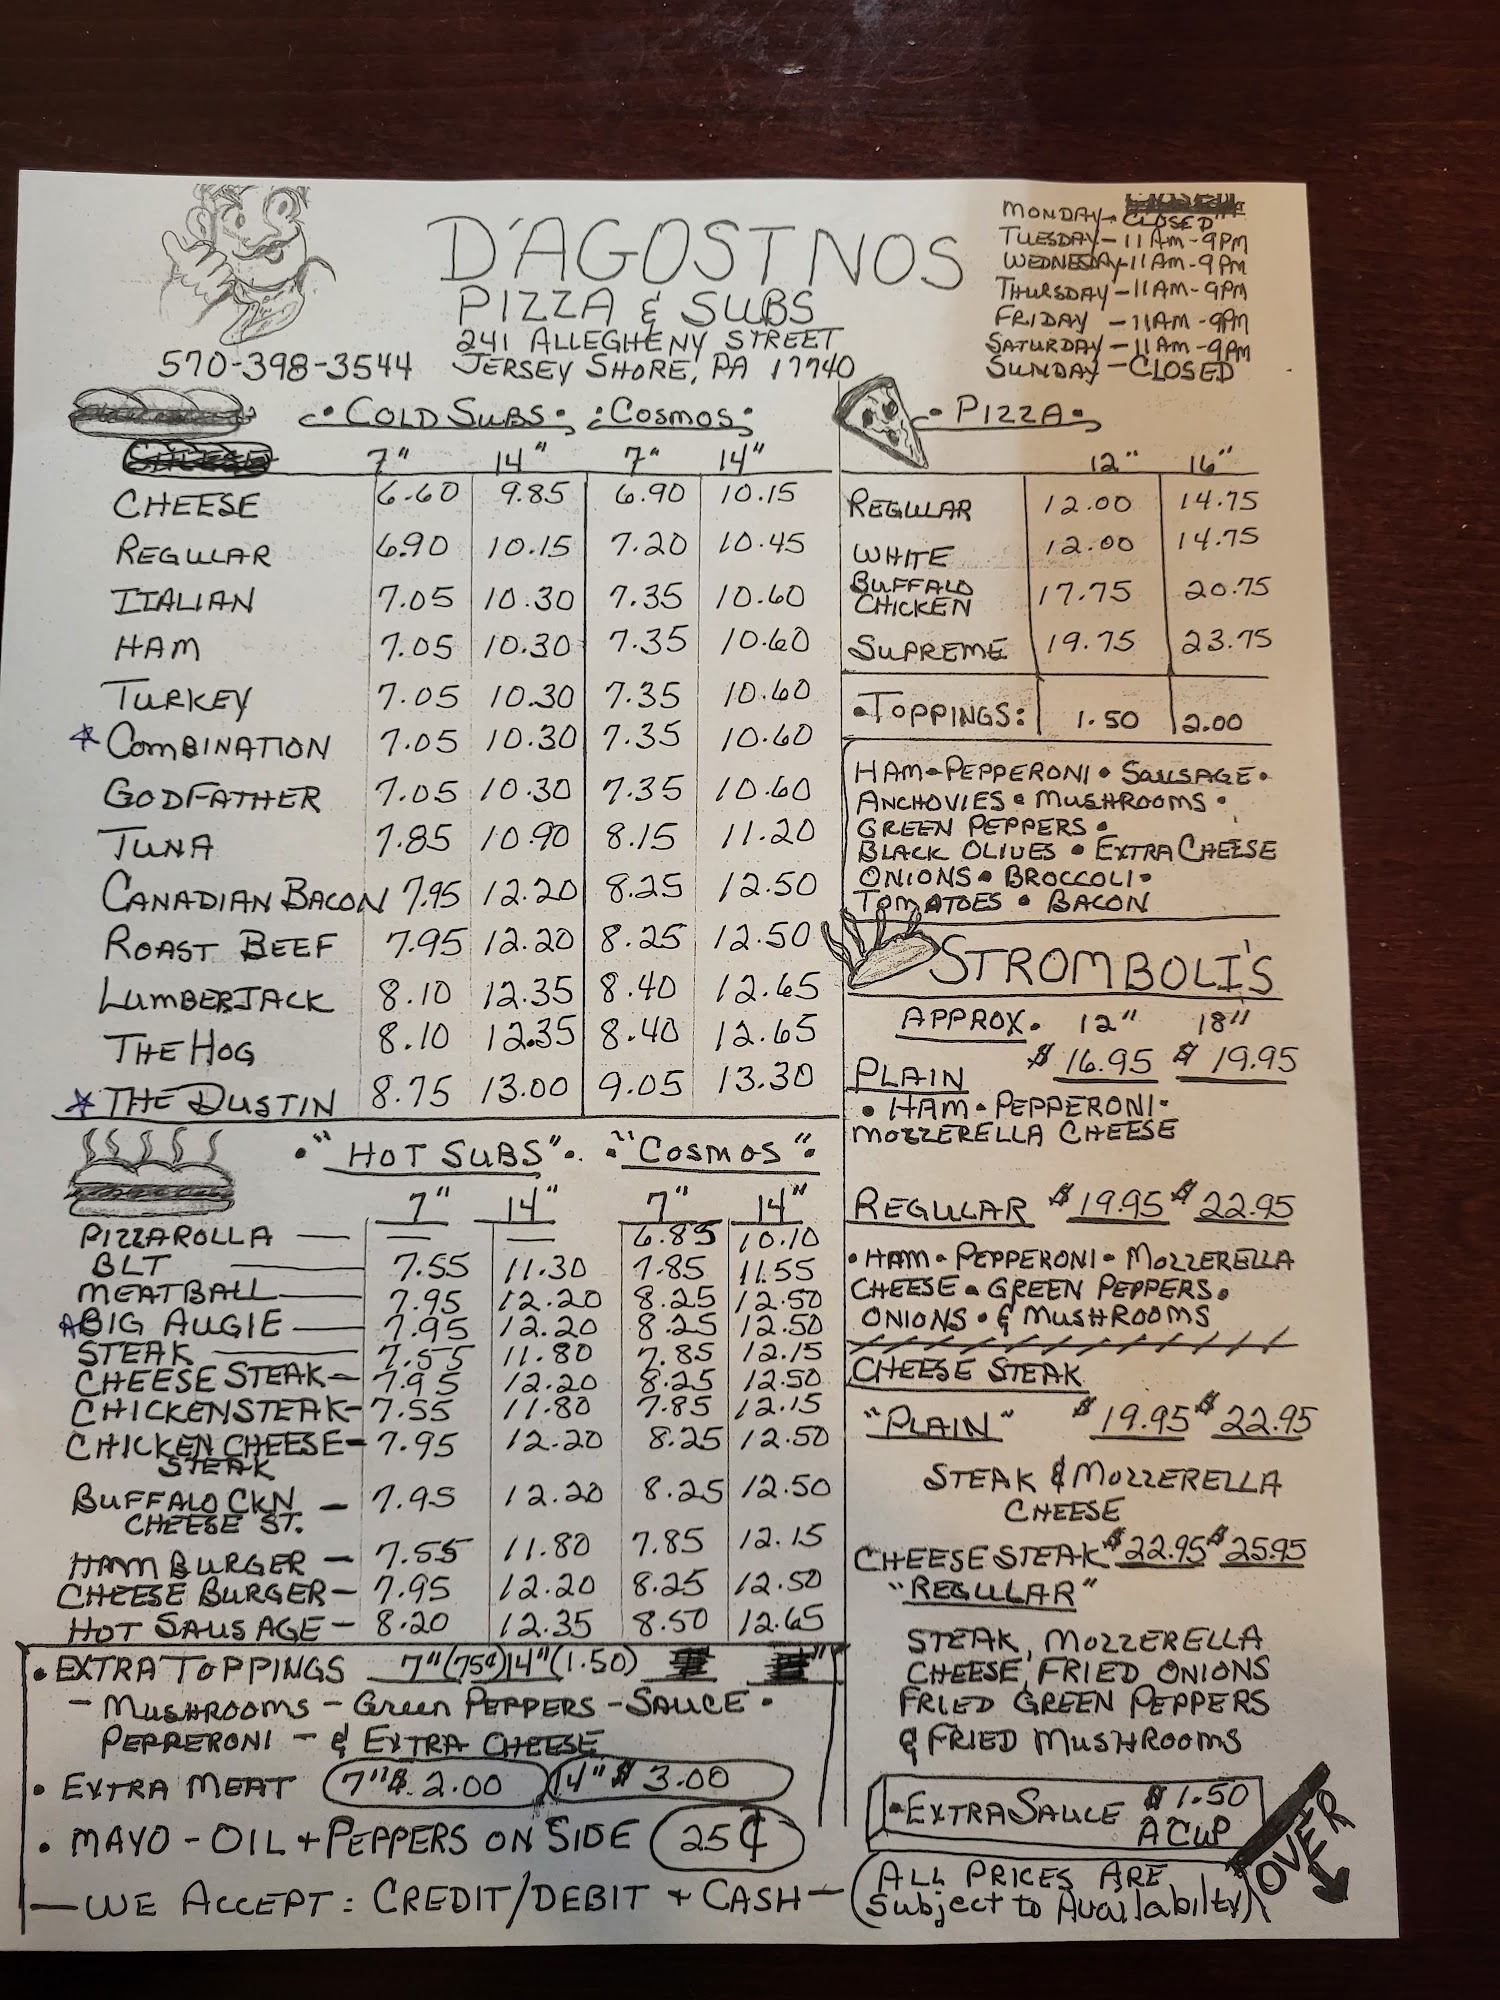 D'AGOSTNOS
PIZZA & SUBS
241 ALLEGHENY STREET
570-398-3544 JERSEY SHORE, PA 17740
MONDAY-CLOSED
TUESDAY-11AM-9PM
WEDNESDAY-11AM-9PM
THURSDAY-11AM-9PM
FRIDAY -11AM-9PM
SATURDAY-11AM-9PM
SUNDAY-CLOSED
•COLD SUBS• :COSMOS:
7" 14" 7" 14"
CHEESE 6.60 9.85 6.90 10.15
REGULAR 6.90 10.15 7.20 10.45
ITALIAN 7.05 10.30 7.35 10.60
HAM 7.05 10.30 7.35 10.60
TURKEY 7.05 10.30 7.35 10.60
COMBINATION 7.05 10.30 7.35 10.60
GODFATHER 7.05 10.30 7.35 10.60
TUNA 7.85 10.90 8.15 11.20
CANADIAN BACON 7.95 12.20 8.25 12.50
ROAST BEEF 7.95 12.20 8.25 12.50
LUMBERJACK 8.10 12.35 8.40 12.65
THE HOG 8.10 12.35 8.40 12.65
THE DUSTIN 8.75 13.00 9.05 13.30
•"HOT SUBS"• •"COSMOS"•
7" 14" 7" 14"
PIZZAROLLA — — — 6.85 10.10
BLT — 7.55 11.30 7.85 11.55
MEATBALL — 7.95 12.20 8.25 12.50
BIG AUGIE — 7.95 12.20 8.25 12.50
STEAK — 7.55 11.80 7.85 12.15
CHEESE STEAK — 7.95 12.20 8.25 12.50
CHICKEN STEAK — 7.55 11.80 7.85 12.15
CHICKEN CHEESE — 7.95 12.20 8.25 12.50
STEAK
BUFFALO CKN — 7.95 12.20 8.25 12.50
CHEESE ST.
HAMBURGER — 7.55 11.80 7.85 12.15
CHEESE BURGER — 7.95 12.20 8.25 12.50
HOT SAUSAGE — 8.20 12.35 8.50 12.65
• EXTRA TOPPINGS 7"(75¢) 14"(1.50)
- MUSHROOMS - GREEN PEPPERS - SAUCE •
PEPPERONI - & EXTRA CHEESE
• EXTRA MEAT 7" $2.00 14" $3.00
• MAYO - OIL + PEPPERS ON SIDE 25¢
— WE ACCEPT: CREDIT/DEBIT + CASH —
•PIZZA•
12" 16"
REGULAR 12.00 14.75
WHITE 12.00 14.75
BUFFALO
CHICKEN 17.75 20.75
SUPREME 19.75 23.75
•TOPPINGS: 1.50 2.00
HAM•PEPPERONI•SAUSAGE•
ANCHOVIES•MUSHROOMS•
GREEN PEPPERS•
BLACK OLIVES•EXTRA CHEESE
ONIONS•BROCCOLI•
TOMATOES•BACON
STROMBOLI'S
APPROX. 12" 18"
PLAIN $16.95 $19.95
•HAM•PEPPERONI•
MOZZERELLA CHEESE
REGULAR $19.95 $22.95
•HAM•PEPPERONI•MOZZERELLA
CHEESE•GREEN PEPPERS•
ONIONS•& MUSHROOMS
CHEESE STEAK
"PLAIN" $19.95 $22.95
STEAK & MOZZERELLA
CHEESE
CHEESE STEAK $22.95 $25.95
"REGULAR"
STEAK, MOZZERELLA
CHEESE, FRIED ONIONS
FRIED GREEN PEPPERS
& FRIED MUSHROOMS
•EXTRA SAUCE $1.50
A CUP
ALL PRICES ARE
Subject to Availabilty
OVER